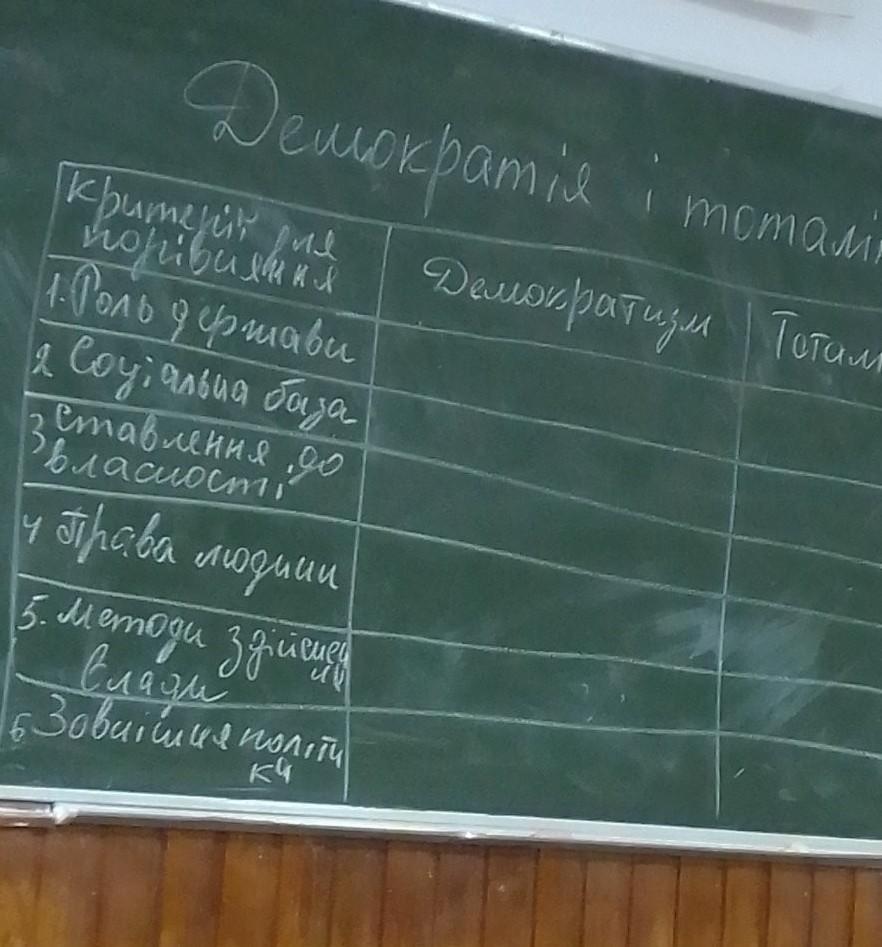 Демократія і тоталі
критерії для
порівняння
Демократизм
Тотал
1. Роль держави
2 Соціальна база
3 Ставлення до
власності
4 Права людини
5. Методи здійснен
ня
влади
6 Зовнішня політи
ка